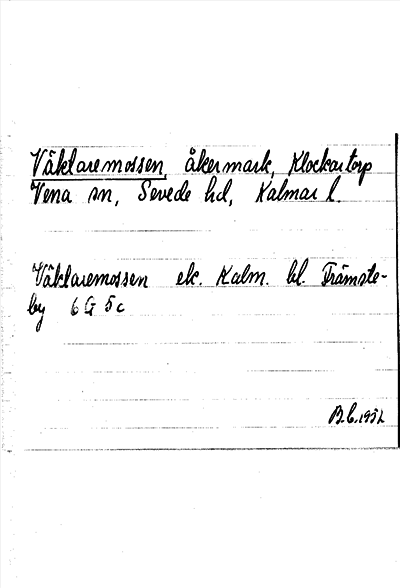 Väktaremossen, åkermark, Klockartorp
Vena sn, Sevede hd, Kalmar l.
Väktaremossen ek. Kalm. bl. Främste-
by 6 G 5 c
B.C. 1952